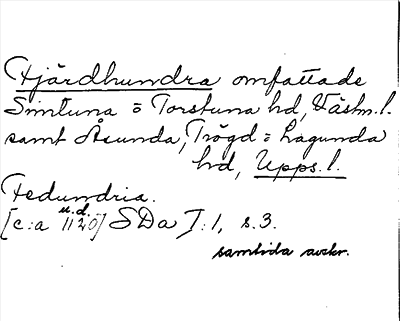 Fjärdhundra omfattade
Simtuna o Torstuna hd, Västm. l.
samt Åsunda, Trögd o Lagunda
hd, Upps. l.
Fedundria.
u.d.
[c:a 1120] SDa I:1, s. 3.
samtida avskr.